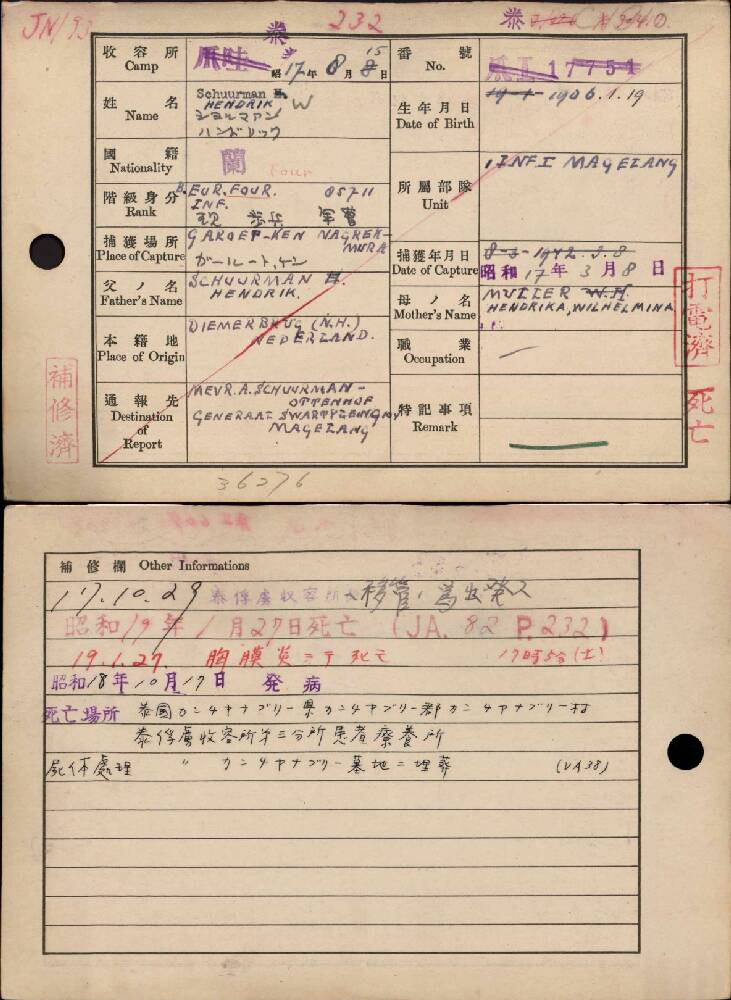 JN/93
232
泰
泰
收容所
Camp
爪哇
昭17年8月15日
番號
No.
爪I 17754
姓名
Name
Schuurman H.
HENDRIK W
シユルマアン
ハンドリック
生年月日
Date of Birth
19-1-1906.1.19
國籍
Nationality
蘭
Four
所屬部隊
Unit
1 INF I MAGELANG
階級身分
Rank
B. EUR. FOUR. 85711
INF.
歩兵 軍曹
捕獲場所
Place of Capture
GAROET-KEN NAGREK-
MURA
ガールート,ケン
捕獲年月日
Date of Capture
8-3-1942.3.8
昭和17年3月8日
父ノ名
Father's Name
SCHUURMAN H.
HENDRIK.
母ノ名
Mother's Name
MULLER W.H.
HENDRIKA, WILHELMINA
本籍地
Place of Origin
DIEMERBRUG (N.H.)
NEDERLAND.
職業
Occupation
通報先
Destination
of
Report
MEVR. A. SCHUURMAN-
OTTENHOF
GENERAAL
MAGELANG
特記事項
Remark
打電濟
死亡
補修濟
36276
補修欄 Other Informations
17.10.29 泰俘虜收容所へ移管ノ為出発ス
昭和19年1月27日死亡 (JA. 82 P.232)
19.1.27. 胸膜炎ニテ死亡 17時5分(土)
昭和18年10月17日 発病
死亡場所 泰國カンチヤナブリー県カンチヤブリー郡カンチヤナブリー村
泰俘虜收容所第三分所患者療養所
屍体處理 〃 カンチヤナブリー墓地ニ埋葬 (VA38)